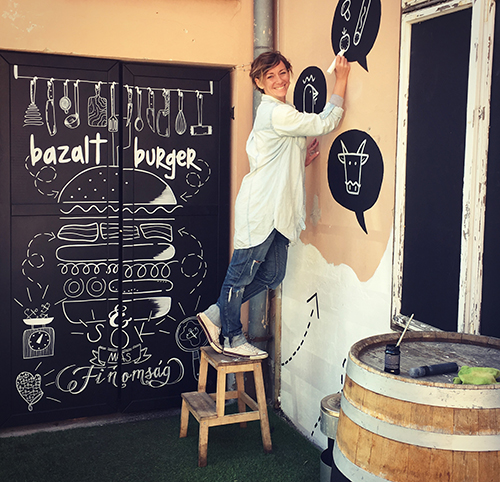 bazalt burger
& más
Finomság